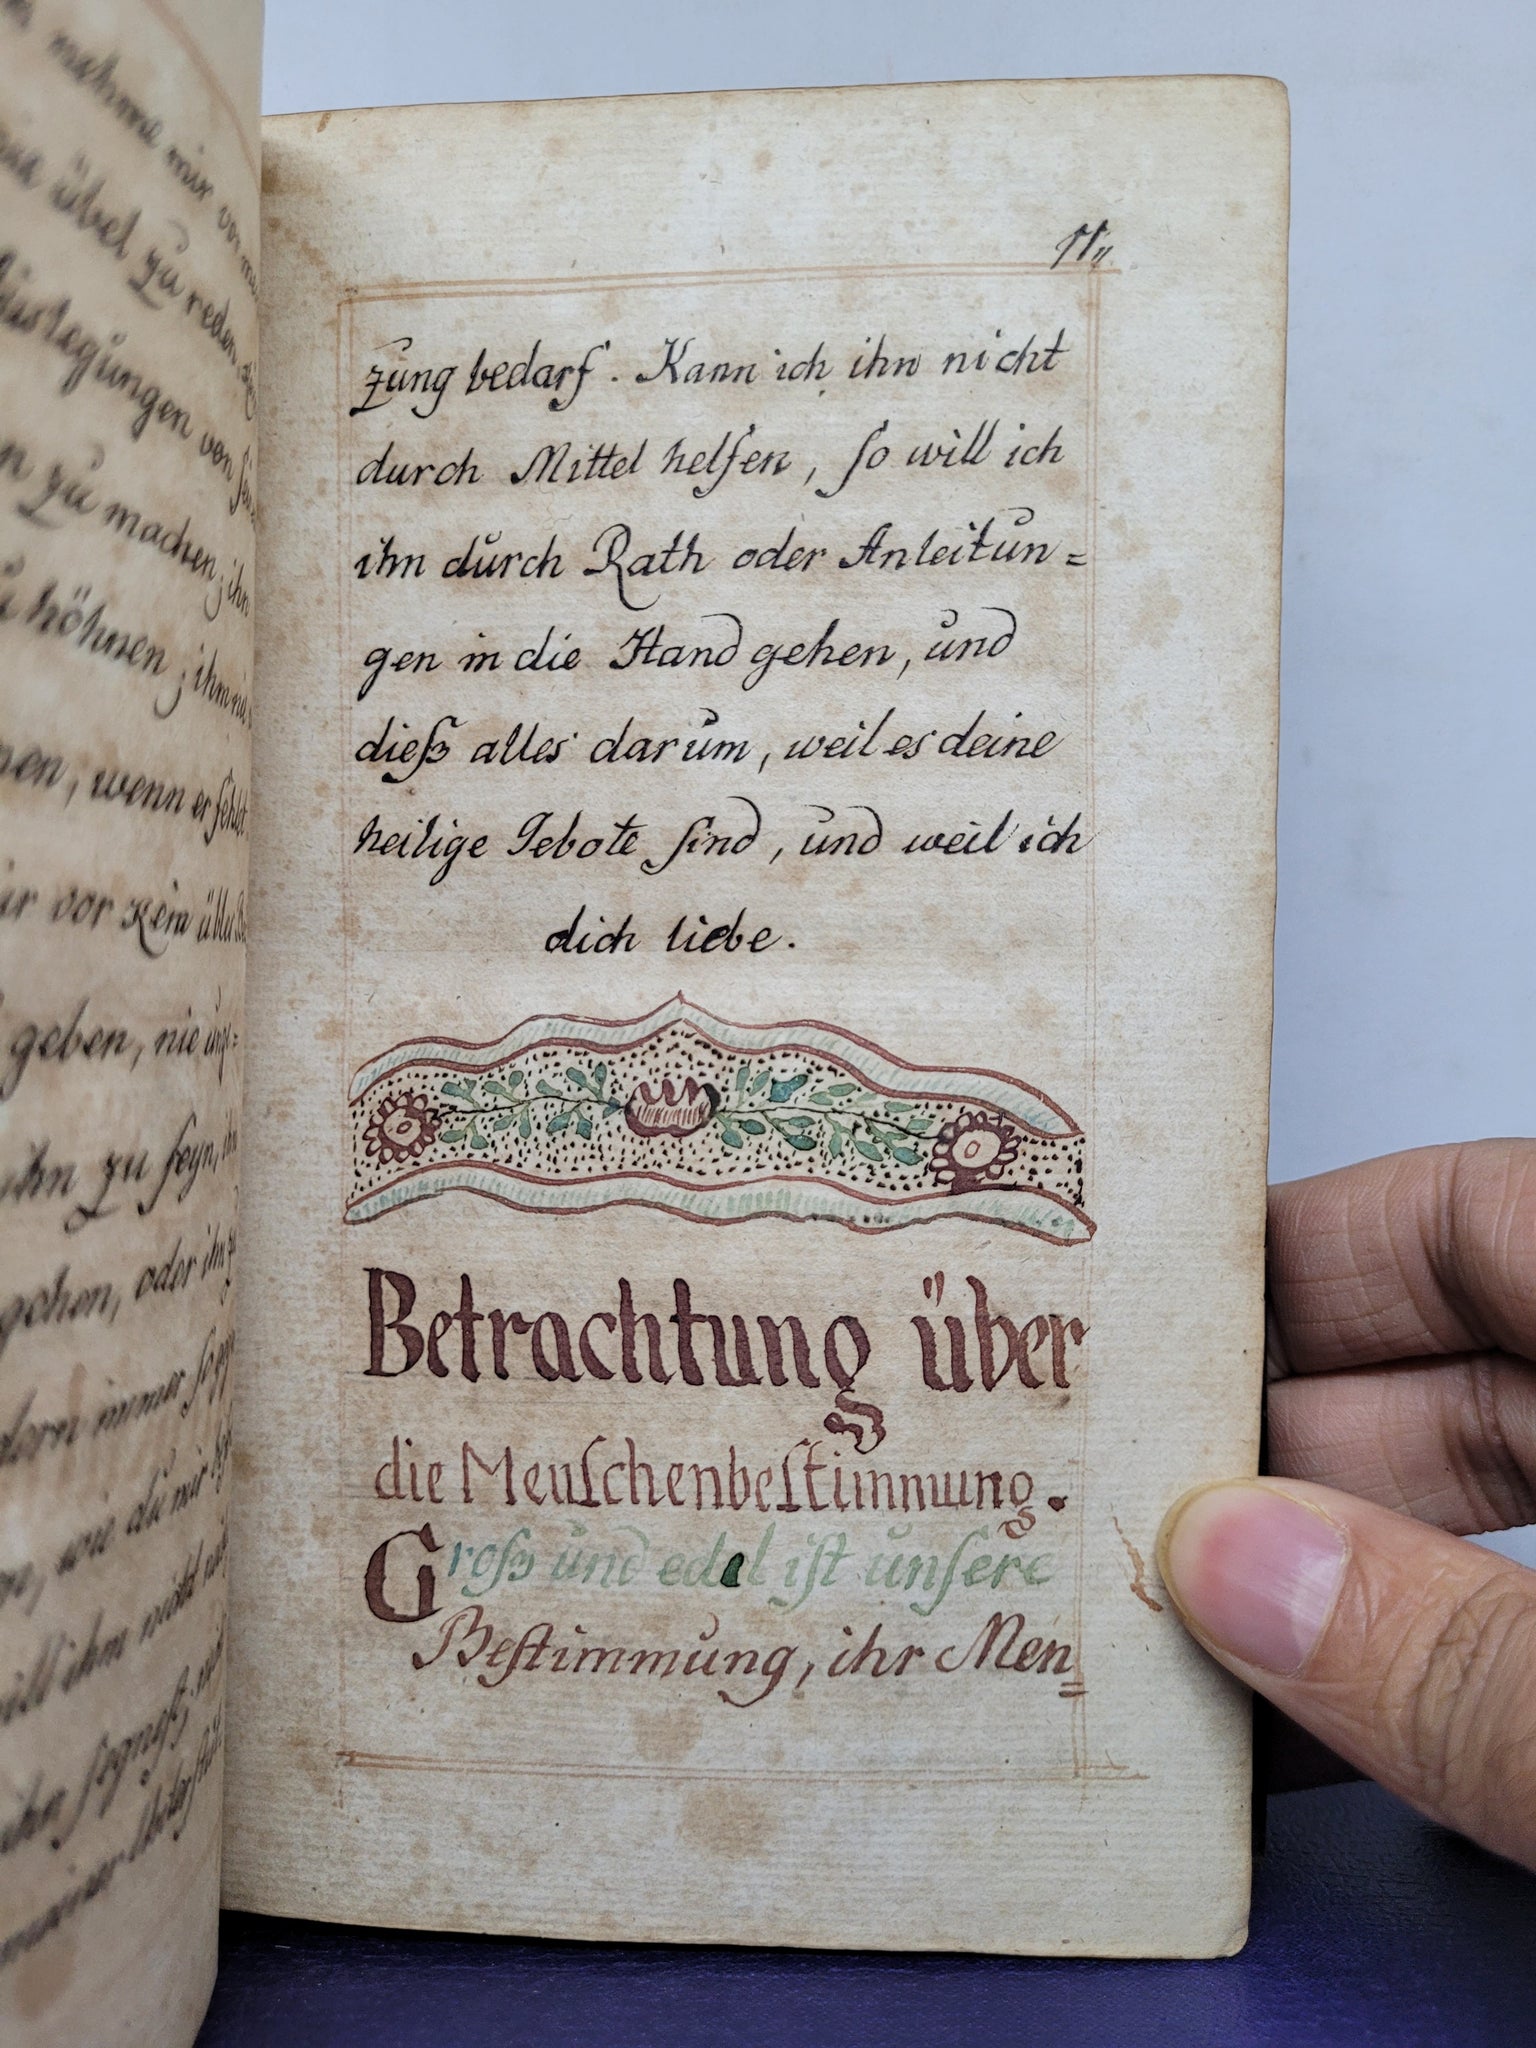 nehme mir vor
übel zu reden
Auslegungen von
zu machen, ihn
höhnen; ihm
wenn er fehlet
vor kein
geben, nie
ihn zu seyn, ihn
gehen, oder ihn
immer
wie du mir
will ihm nicht
ihn segnest,
11,,
zung bedarf. Kann ich ihn nicht
durch Mittel helfen, ſo will ich
ihn durch Rath oder Anleitun=
gen in die Hand gehen, und
dieß alles darum, weil es deine
heilige Gebote ſind, und weil ich
dich liebe.
Betrachtung über
die Menſchenbeſtimmung.
Groß und edel iſt unſere
Beſtimmung, ihr Men=